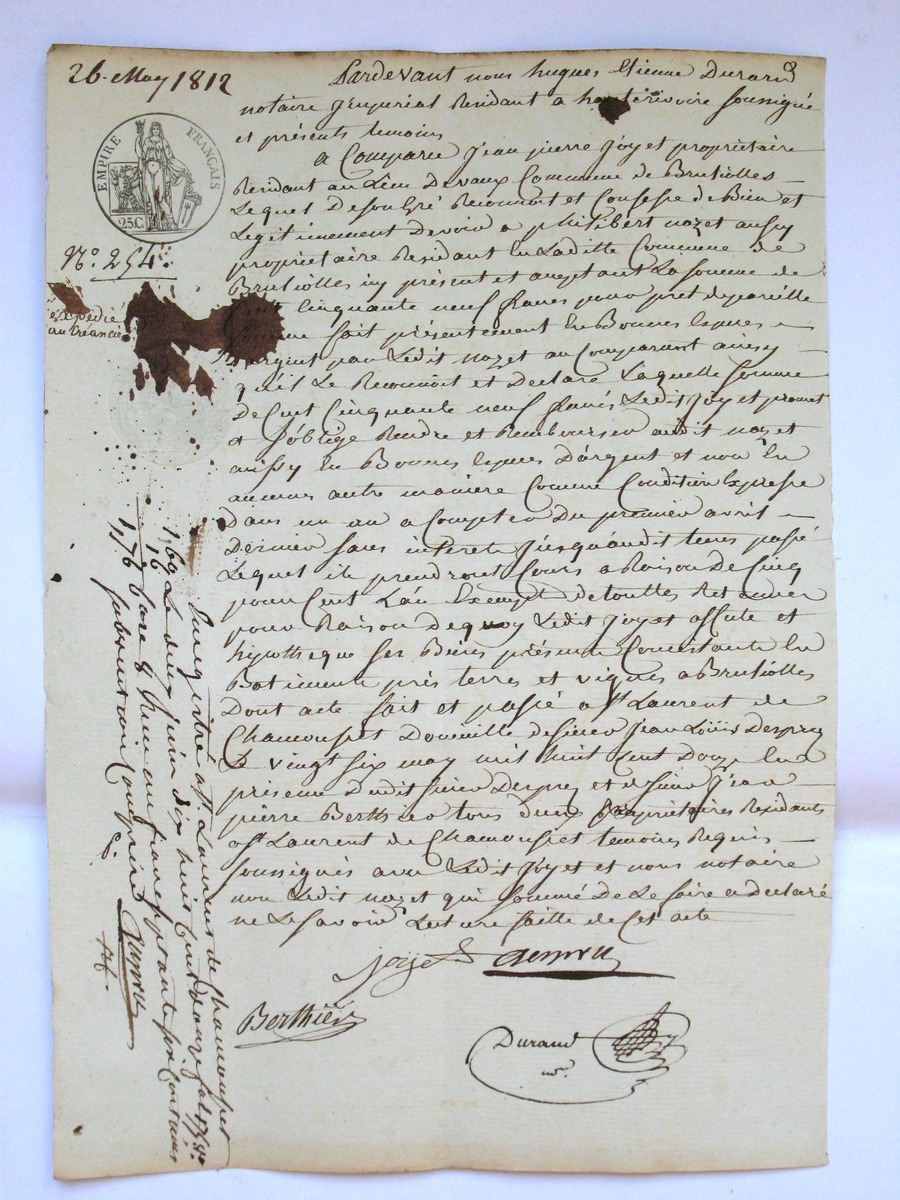 26. May 1812
Pardevant nous hugues Etienne Durand
notaire Jmperial Residant a hauterivoire soussigné
et présents temoins
a Comparu Jean pierre Joyet propriétaire
Residant au Lieu Devaux Commune de Brusiolles
Lequel De son Gré Reconnoit et Confesse de Bien et
Legitimement devoir a philibert nozet aussy
propriétaire Residant en Laditte Commune de
Brusiolles icy présent et aceptant La somme de
Cent Cinquante neuf francs pour pret de pareille
somme fait présentement En Bonnes Especes
D'argent par Ledit nozet au Comparant ainsy
qu'il Le Reconnoit et Declare Laquelle somme
de Cent Cinquante neuf francs Ledit Joyet promet
et s'oblige Rendre et Rembourser audit nozet
aussy En Bonnes Especes D'argent et non En
aucune autre maniere Comme Condition Expresse
Dans un an a Compter Du premier avril
Dernier sans interets Jusqu'audit tems passé
Lequel ils prendront Cours a Raison De Cinq
pour Cent L'an Exempt de touttes Retenues
pour Raison De quoy Ledit Joyet affecte et
hipotheque ses Biens présents Consistants En
Batiments prés terres et vignes a Brusiolles
Dont acte fait et passé a St Laurent de
Chamousset Domicille de sieur Jean Louis Desprez
Le vingt six may mil huit Cent Douze En
présence Dudit sieur Desprez et de sieur Jean
pierre Berthier tous deux propriétaires Residants
a St Laurent de Chamousset temoins Requis
soussignés avec Ledit Joyet et nous notaire
non Ledit nozet qui sommé De Le faire a declaré
ne Le savoir Lecture faitte de Cet acte
Joyet
Berthier
Durand
nre.
EMPIRE FRANÇAIS
25C
No. 254.
expedié
au Créancier
Enregistré a St. Laurent de Chamousset
Le deux juin dix huit Cent douze fol